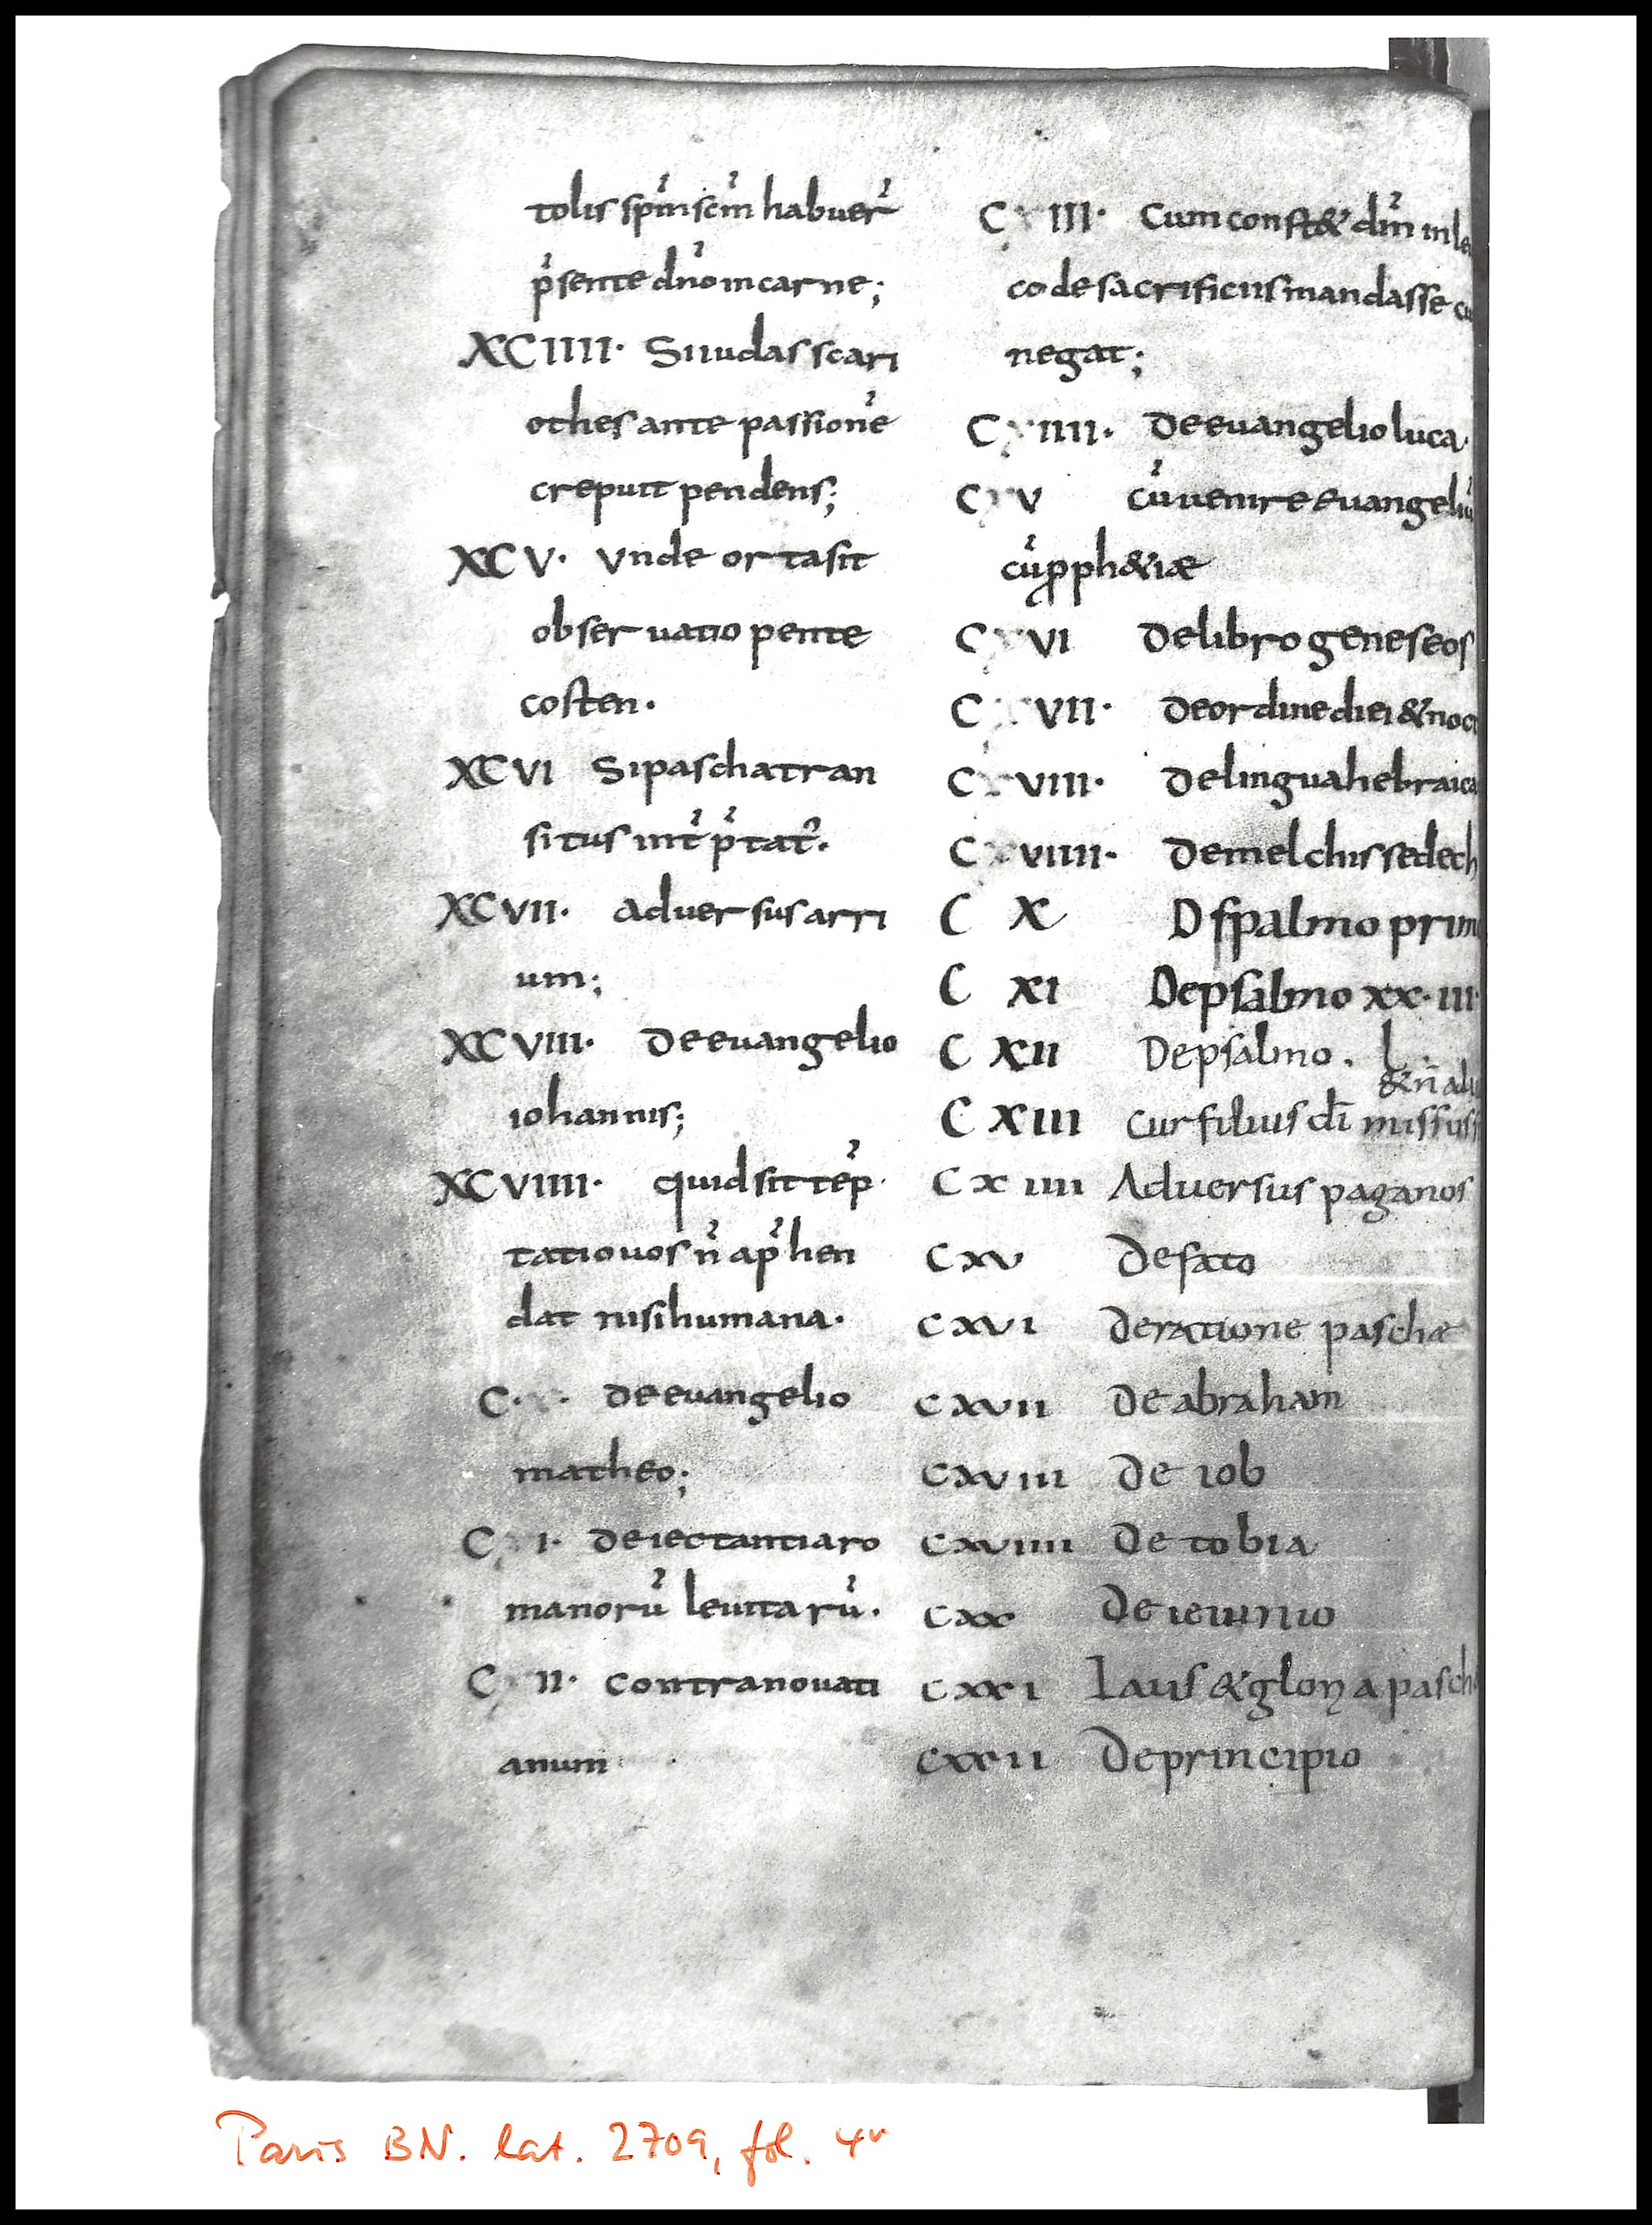 tolis sp̄m scm̄ habuer̄
p̄sente dn̄o in carne;
XCIIII· Si iudas scari
othes ante passionē
crepuit pendens;
XCV· Unde orta sit
observatio pente
costen·
XCVI Si pascha tran
situs int̄p̄tat̄·
XCVII· adversus arri
um;
XCVIII· De euangelio
iohannis;
XCVIIII· quid sit tēp
tatio vos n̄ ap̄hen
dat nisi humana·
C· · De euangelio
matheo;
C I· De iectantia ro
manorū leuitarū·
C II· contra novati
anum
C III· Cum constet dm̄ in
co de sacrificiis mandasse
negat;
C IIII· De euangelio luca·
C V Cū uenire euangeliū
cū p̱phetiæ
C VI De libro geneseos
C VII· De ordine diei & noct
C VIII· De lingua hebraica
C VIIII· De melchissedech
C X D spalmo prim
C XI De psalmo XX·III·
C XII De psalmo · L·
& n̄
C XIII Cur filius dī missus
C XIIII Adversus paganos
CXV De fato
CXVI De ratione paschæ
CXVII De abraham
CXVIII De iob
CXVIIII De tobia
CXX De ieiunio
CXXI Laus & gloria pasch
CXXII De principio
Paris BN. lat. 2709, fol. 4v